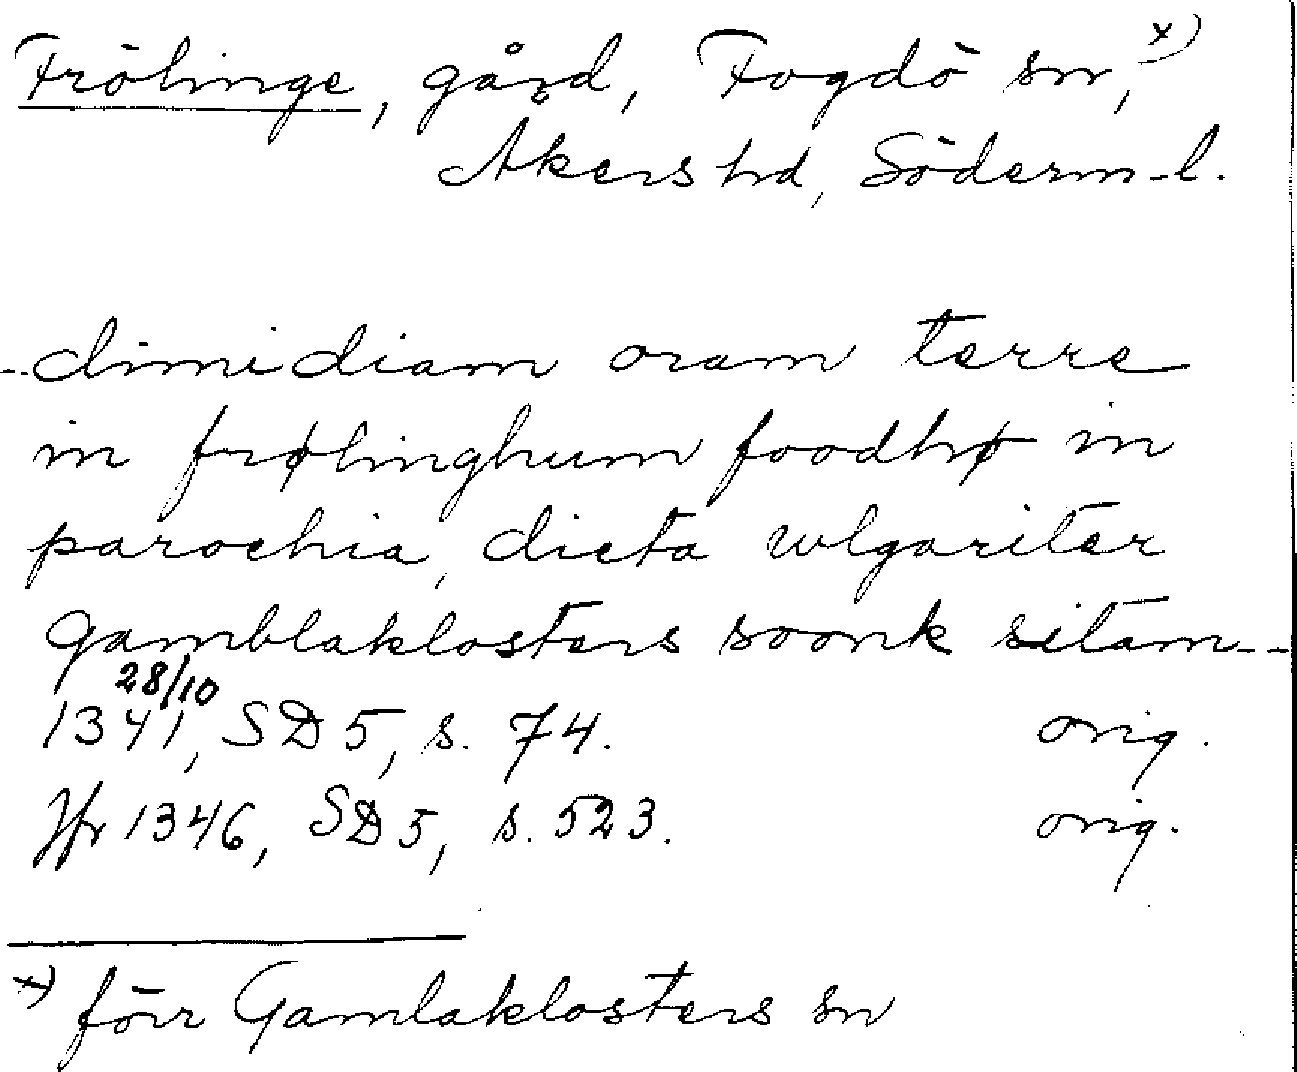 Frölinge, gård, Fogdö sn, x)
Åkers hd, Söderm-l.
--dimidiam oram terre
in frølinghum foodhø in
parochia, dicta wlgariter
gamblaklosters soonk sitam--
28/10
1341, SD 5, s. 74. orig.
Jfr 1346, SD 5, s. 523. orig.
x) förr Gamlaklosters sn